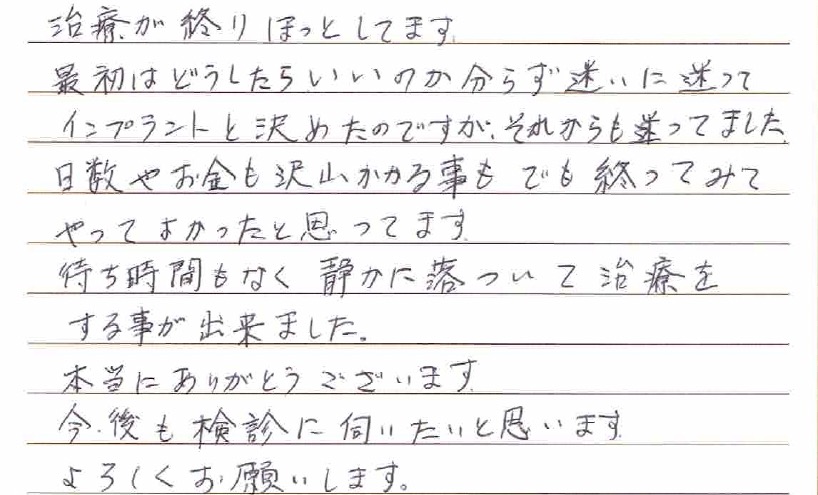 治療が終りほっとしてます.
最初はどうしたらいいのか分らず迷いに迷って
インプラントと決めたのですが、それからも迷ってました、
日数やお金も沢山かかる事も でも終ってみて
やってよかったと思ってます.
待ち時間もなく 静かに落ついて治療を
する事が出来ました。
本当にありがとうございます.
今後も検診に伺いたいと思います.
よろしくお願いします。